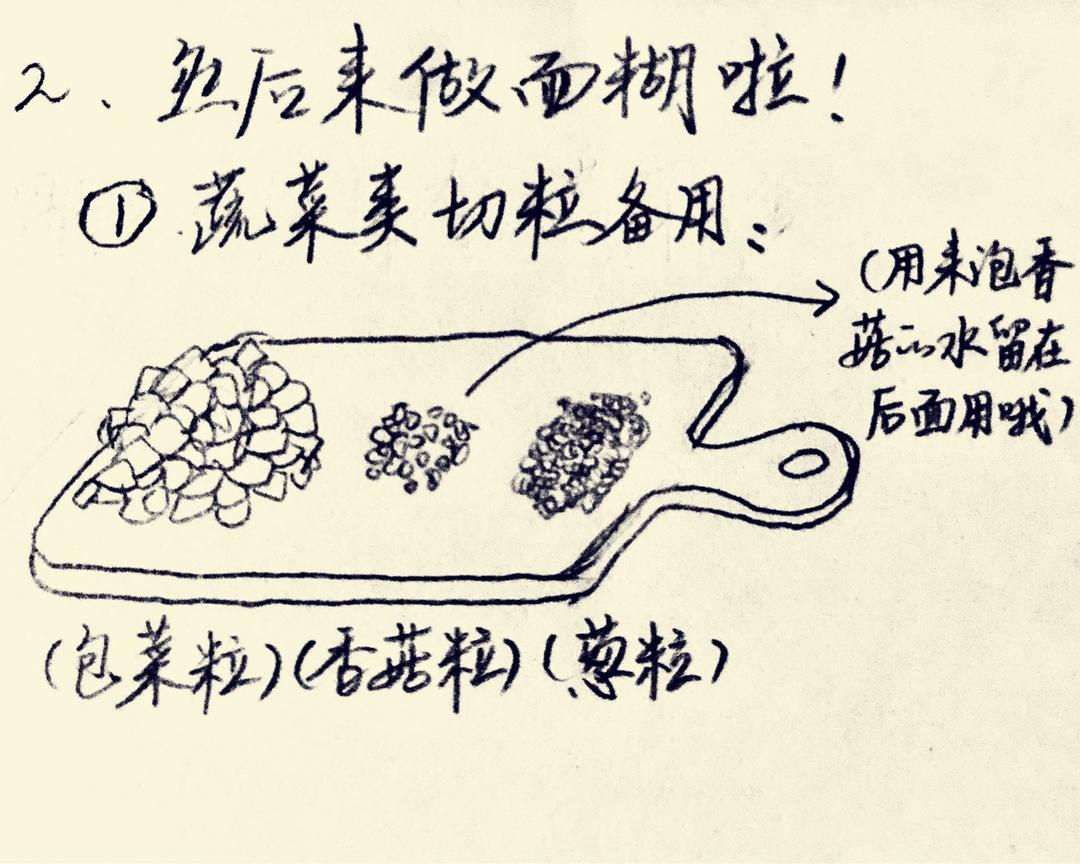 2、然后来做面糊啦！
①.蔬菜类切粒备用：
（用来泡香
菇的水留在
后面用哦）
（包菜粒）（香菇粒）（葱粒）